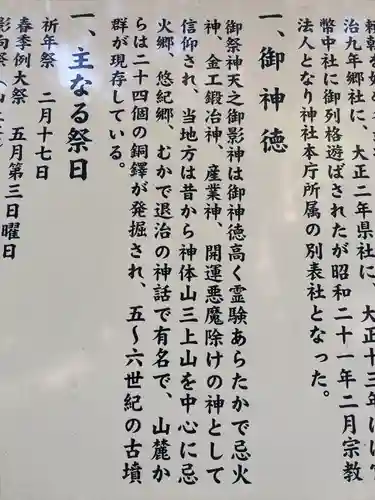 治九年郷社に、大正二年県社に、大正十三年
幣中社に御列格遊ばされたが昭和二十一年二月宗教
法人となり神社本庁所属の別表社となった。
一、御神徳
御祭神天之御影神は御神徳高く霊験あらたかで忌火
神、金工鍛冶神、産業神、開運悪魔除けの神として
信仰され、当地方は昔から神体山三上山を中心に忌
火郷、悠紀郷、むかで退治の神話で有名で、山麓か
らは二十四個の銅鐸が発掘され、五～六世紀の古墳
群が現存している。
一、主なる祭日
祈年祭　二月十七日
春季例大祭　五月第三日曜日